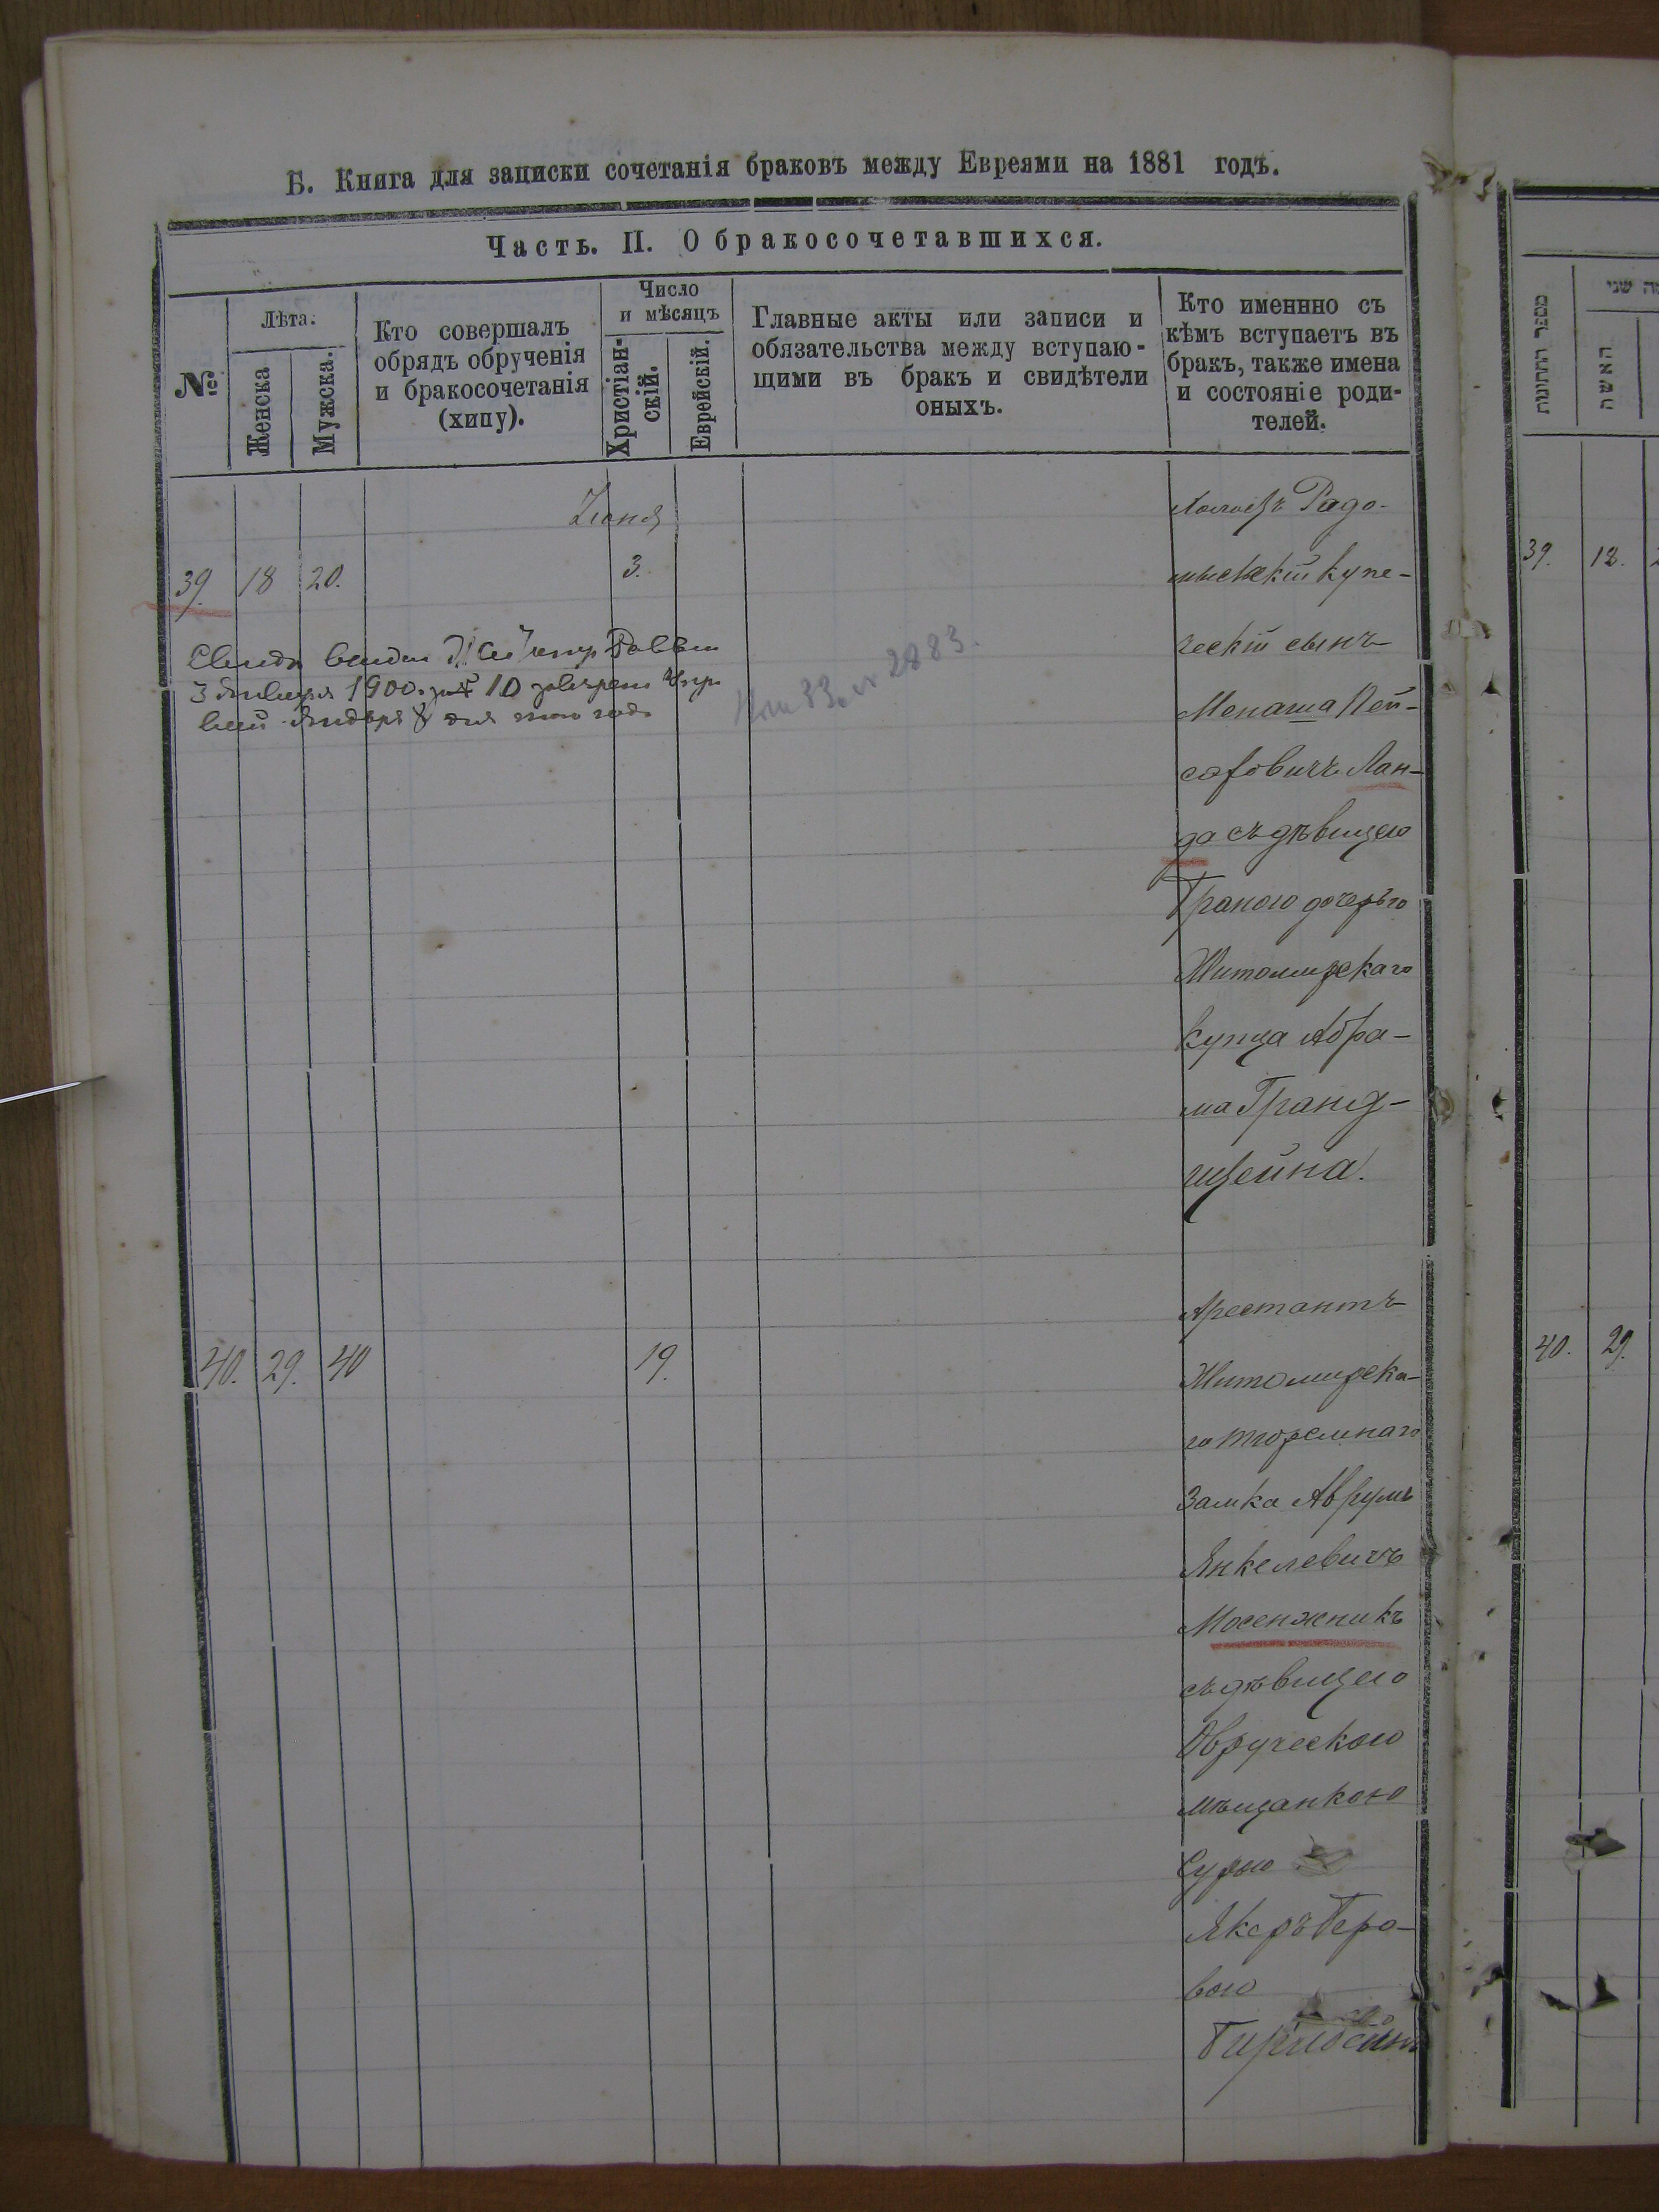 Б. Книга для записки сочетанія браковъ между Евреями на 1881 годъ.
Часть. II. О бракосочетавшихся.
№
Лѣта.
Женска
Мужска.
Кто совершалъ
обрядъ обрученія
и бракосочетанія
(хипу).
Число
и мѣсяцъ
Христіан-
скій.
Еврейскій.
Главные акты или записи и
обязательства между вступаю-
щими въ бракъ и свидѣтели
оныхъ.
Кто именнно съ
кѣмъ вступаетъ въ
бракъ, также имена
и состояніе роди-
телей.
Іюня
39. 18 20. 3.
Холостъ Радо-
мысльскій купе-
ческій сынъ
Менаша Пей-
саховичъ Лан-
да съ дѣвицею
Граною дочерью
Житомирскаго
купца Абра-
ма Гранд-
штейна.
1900
2883.
40. 29. 40 19.
Арестантъ
Житомирска-
го тюремнаго
Замка Аврумъ
Янкелевичъ
Мосенжникъ
съ дѣвицею
Овручскою
мѣщанкою
Сурою
вою
מספר החתונות
האשה
39. 18.
40. 29.